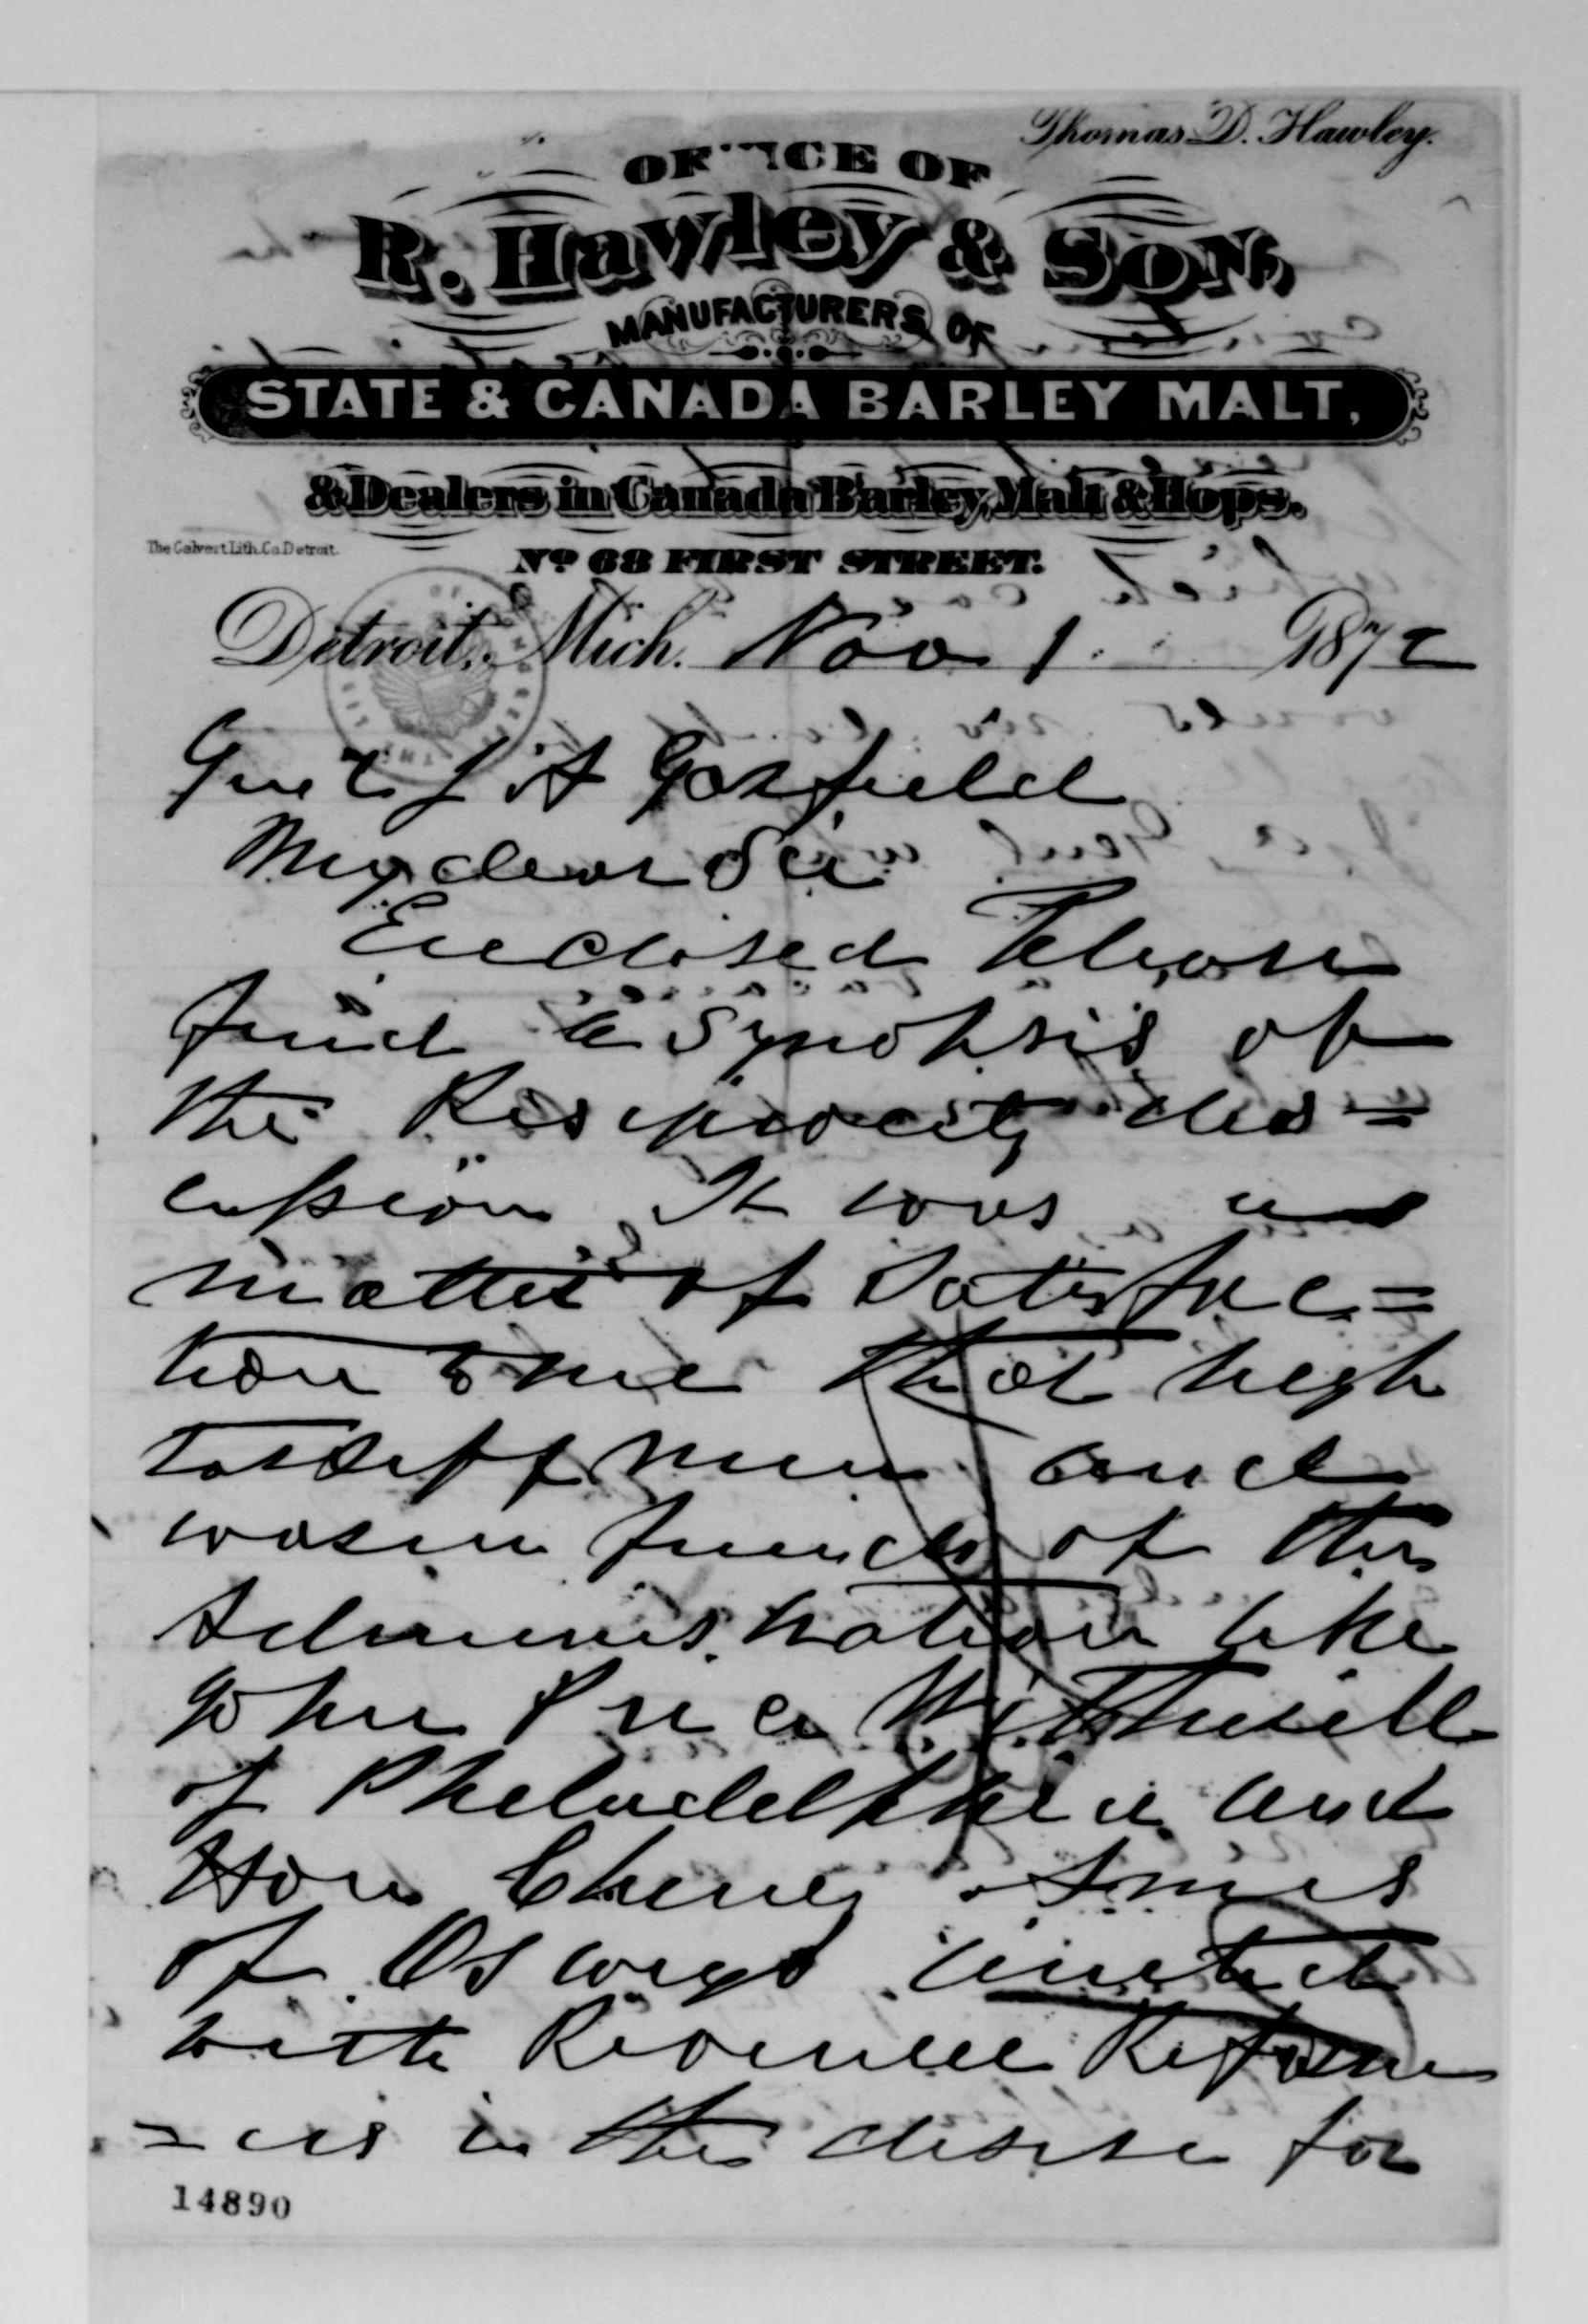 Thomas D. Hawley.
OFFICE OF
R. Hawley & Son,
MANUFACTURERS OF
STATE & CANADA BARLEY MALT,
& Dealers in Canada Barley, Malt & Hops.
The Calvert Lith. Co. Detroit.
No 68 FIRST STREET.
Detroit, Mich. Nov 1 1872
Genl J A Garfield
My dear Sir
Enclosed Please
find a Synopsis of
the Reciprocity dis=
cussion It was a
matter of Satisfac=
tion to me that high
tariff men and
warm friends of the
Administration like
John Price Wetherill
of Philadelphia and
Hon Cheney Ames
of Oswego united
with Revenue Reform
=ers in the desire for
14890